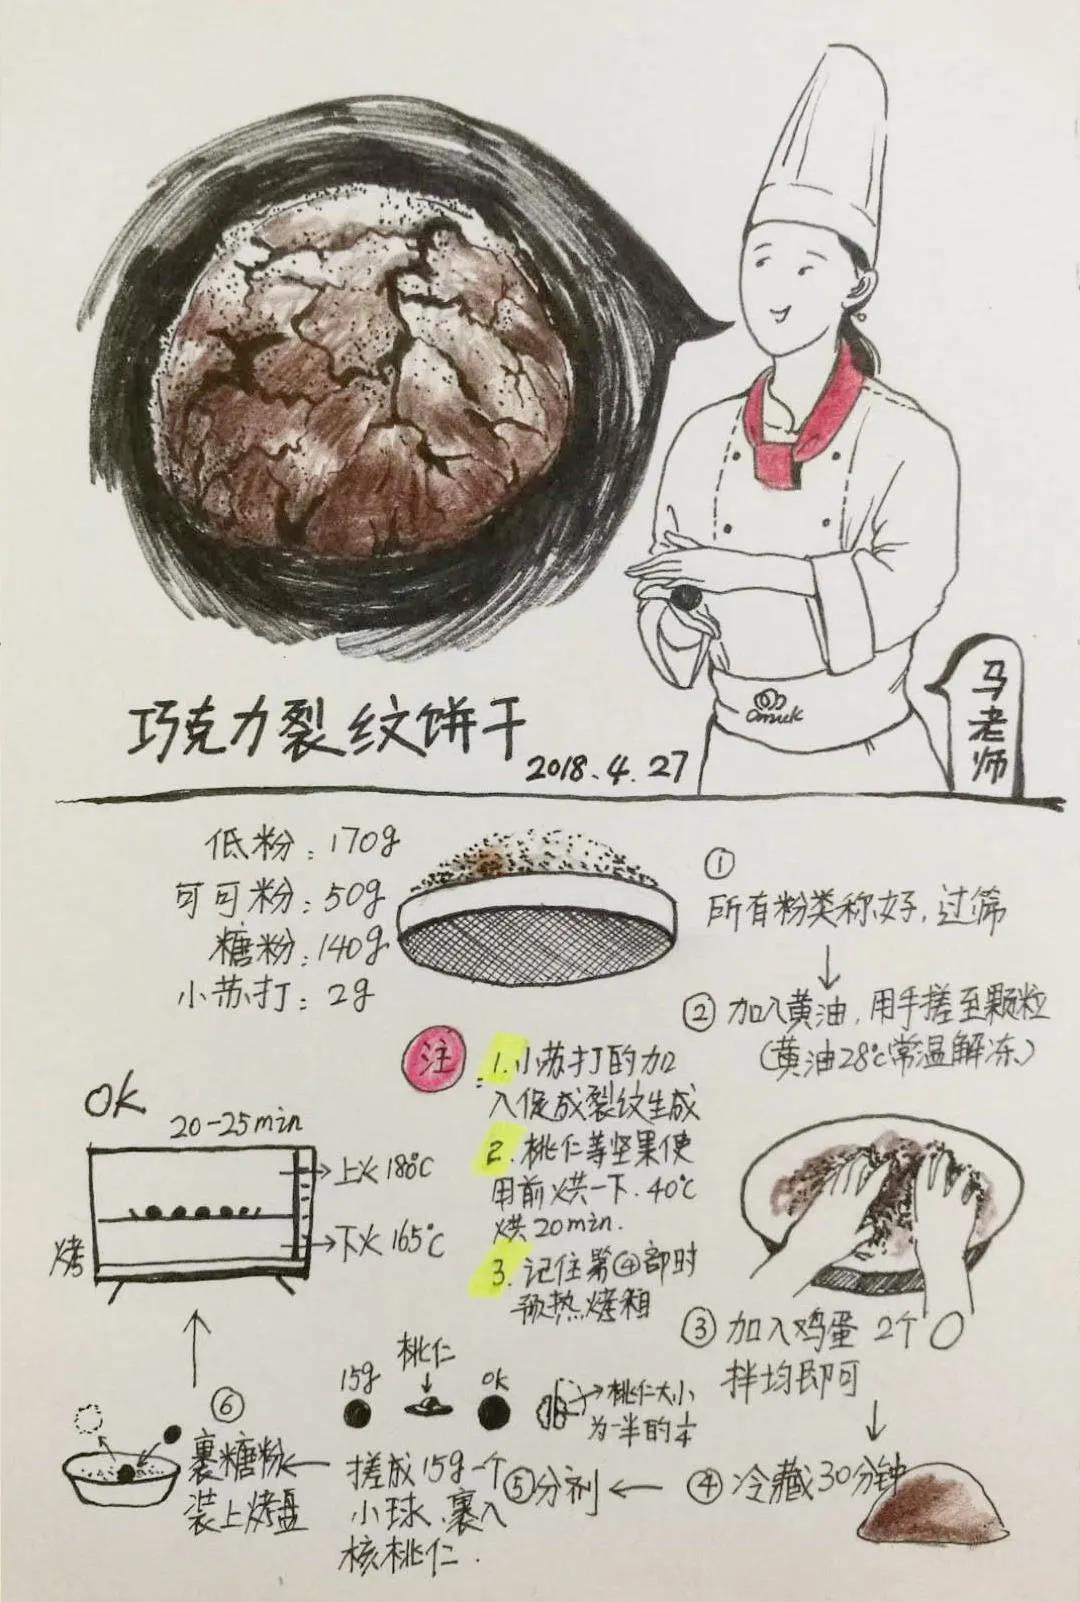 巧克力裂纹饼干
2018.4.27
马老师
Omuk
低粉：170g
可可粉：50g
糖粉：140g
小苏打：2g
①
所有粉类称好，过筛
② 加入黄油，用手搓至颗粒
（黄油28℃常温解冻）
注：
1.小苏打的加
入促成裂纹生成
2.桃仁等坚果使
用前烘一下.40℃
烘20min.
3.记住第④部时
预热烤箱
③ 加入鸡蛋 2个
拌均即可
④ 冷藏30分钟
⑤分剂
15g
桃仁
OK
桃仁大小
为一半的1/4
搓成15g一个
小球、裹入
核桃仁.
⑥
裹糖粉
装上烤盘
烤
OK
20-25min
上火180℃
下火165℃